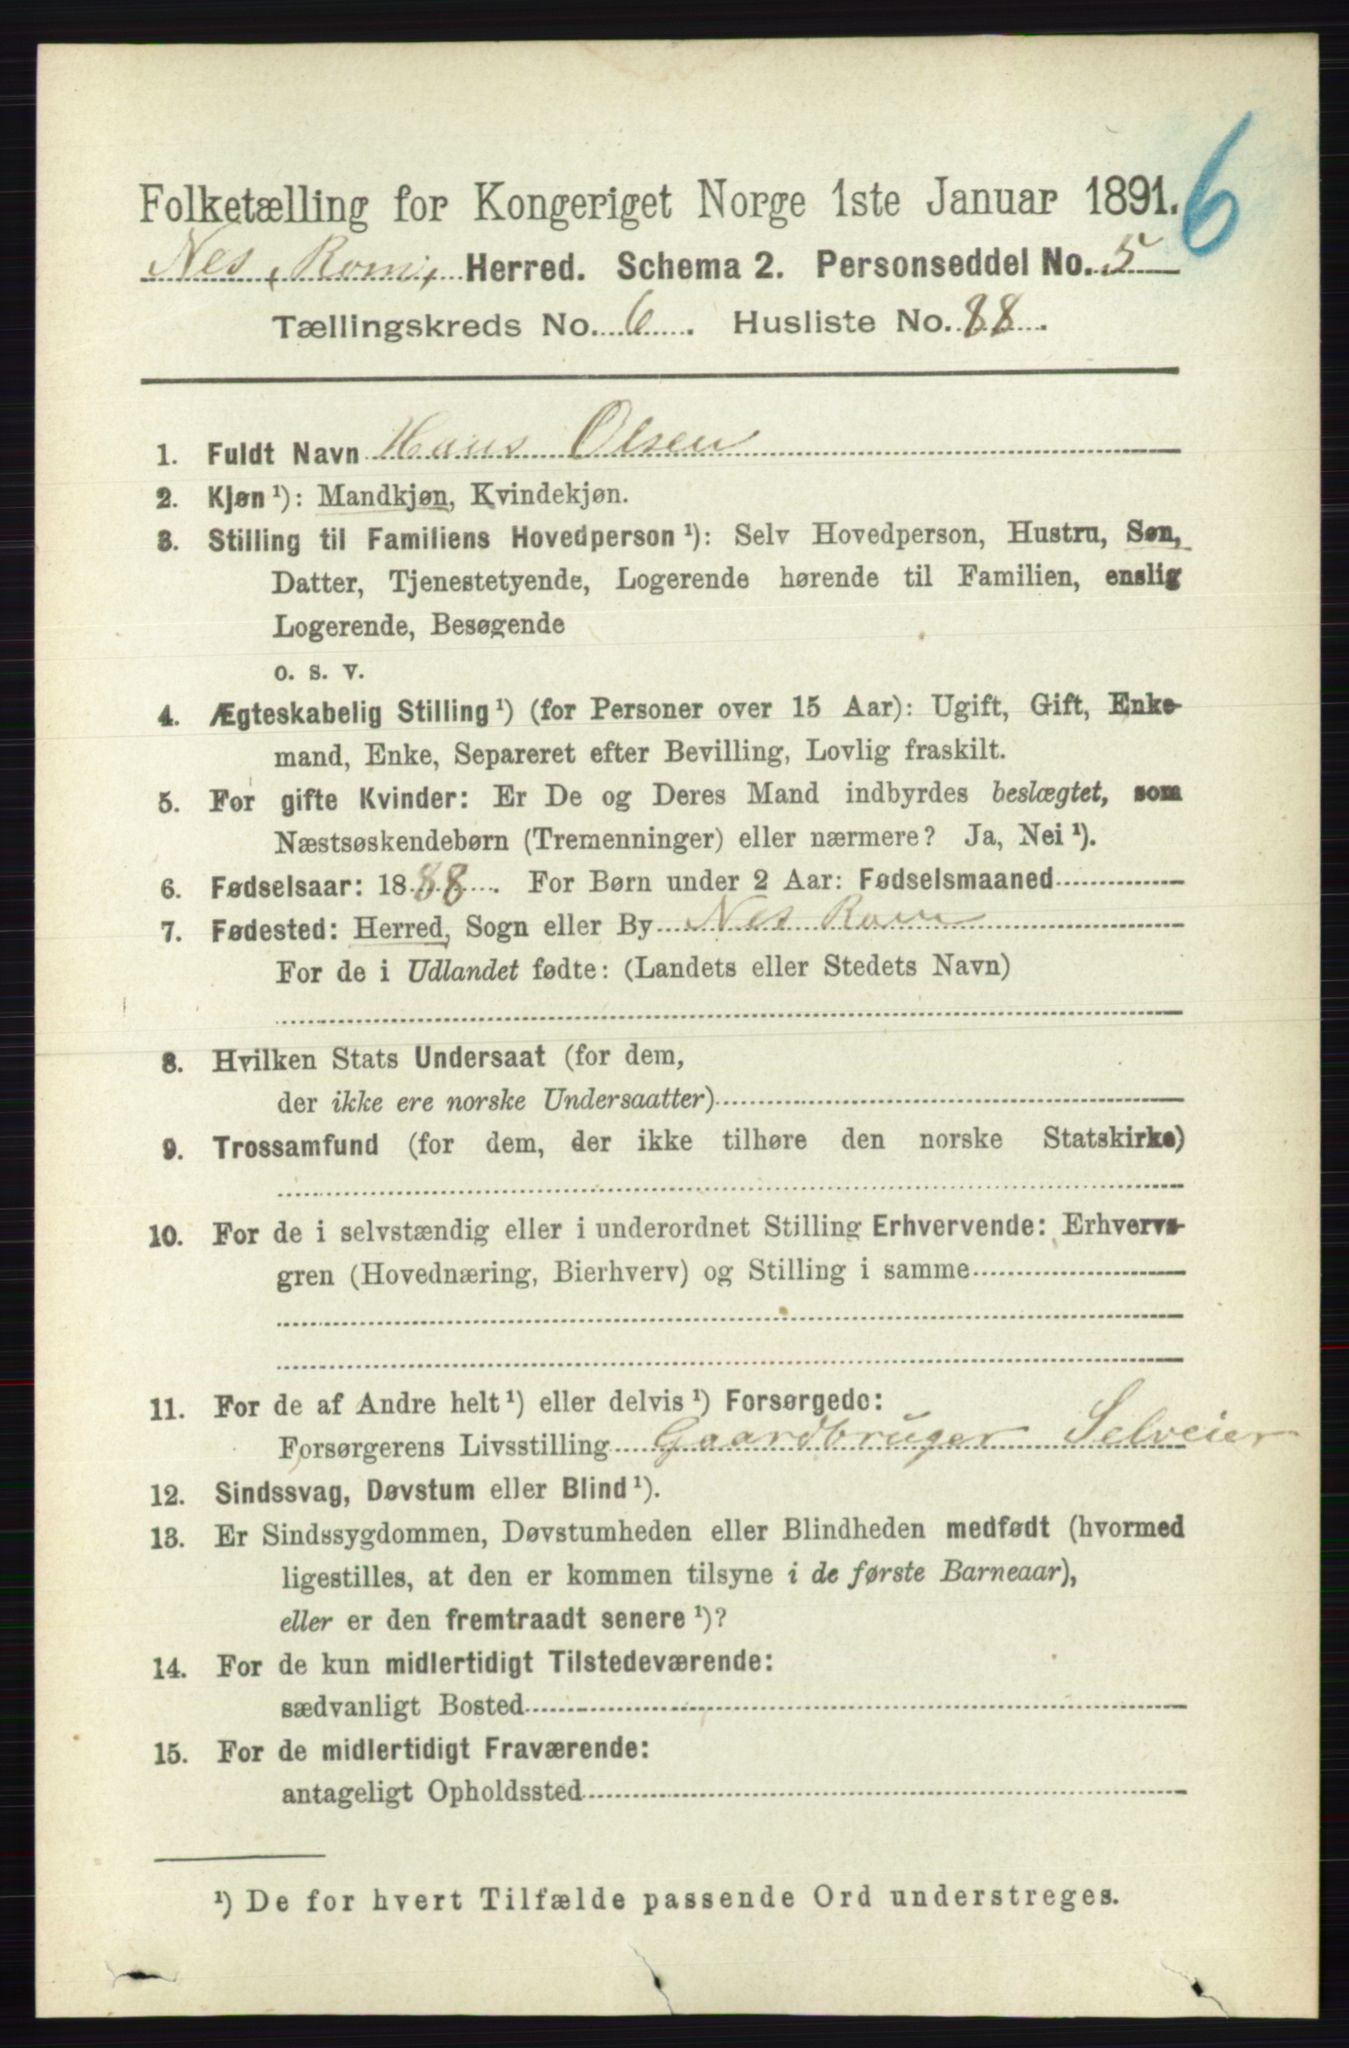 6
Folketælling for Kongeriget Norge 1ste Januar 1891.
Nes, Rom, Herred. Schema 2. Personseddel No. 5
Tællingskreds No. 6. Husliste No. 88.
1. Fuldt Navn Hans Olsen
2. Kjøn ¹): Mandkjøn, Kvindekjøn.
3. Stilling til Familiens Hovedperson ¹): Selv Hovedperson, Hustru, Søn,
Datter, Tjenestetyende, Logerende hørende til Familien, enslig
Logerende, Besøgende
o. s. v.
4. Ægteskabelig Stilling ¹) (for Personer over 15 Aar): Ugift, Gift, Enke-
mand, Enke, Separeret efter Bevilling, Lovlig fraskilt.
5. For gifte Kvinder: Er De og Deres Mand indbyrdes beslægtet, som
Næstsøskendebørn (Tremenninger) eller nærmere? Ja, Nei ¹).
6. Fødselsaar: 1888. For Børn under 2 Aar: Fødselsmaaned
7. Fødested: Herred, Sogn eller By Nes Rom
For de i Udlandet fødte: (Landets eller Stedets Navn)
8. Hvilken Stats Undersaat (for dem,
der ikke ere norske Undersaatter)
9. Trossamfund (for dem, der ikke tilhøre den norske Statskirke)
10. For de i selvstændig eller i underordnet Stilling Erhvervende: Erhvervs-
gren (Hovednæring, Bierhverv) og Stilling i samme
11. For de af Andre helt ¹) eller delvis ¹) Forsørgede:
Forsørgerens Livsstilling Gaardbruger Selveier
12. Sindssvag, Døvstum eller Blind ¹).
13. Er Sindssygdommen, Døvstumheden eller Blindheden medfødt (hvormed
ligestilles, at den er kommen tilsyne i de første Barneaar),
eller er den fremtraadt senere ¹)?
14. For de kun midlertidigt Tilstedeværende:
sædvanligt Bosted
15. For de midlertidigt Fraværende:
antageligt Opholdssted
¹) De for hvert Tilfælde passende Ord understreges.